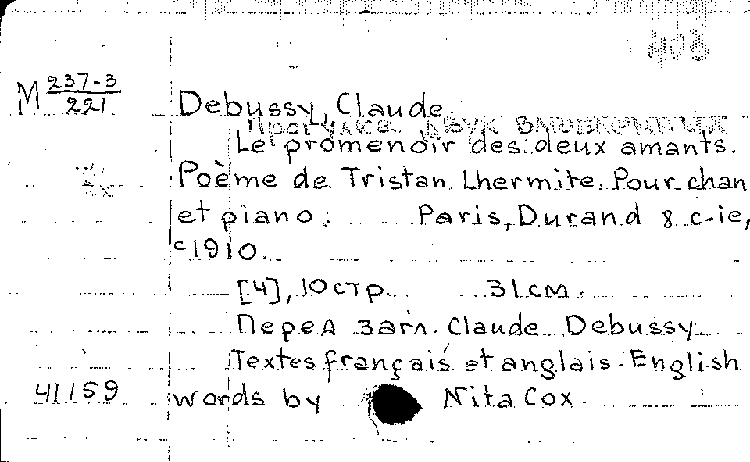 403
М 237-3/221
Debussy, Claude.
Прогулка двух влюбленных
Le promenoir des deux amants.
Poème de Tristan Lhermite. Pour chan
et piano. Paris, Durand & c-ie,
c1910.
[4], 10 стр. 31 см.
Перед загл. Claude Debussy
Textes français et anglais. English
41159 words by Nita Cox